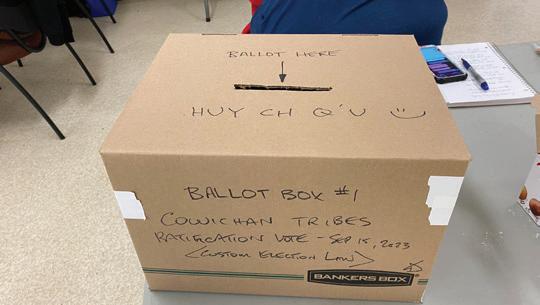 BALLOT HERE
HUY CH Q'U
BALLOT BOX #1
COWICHAN TRIBES
RATIFICATION VOTE - SEP 15, 2023
<CUSTOM ELECTION LAW>
BANKERS BOX